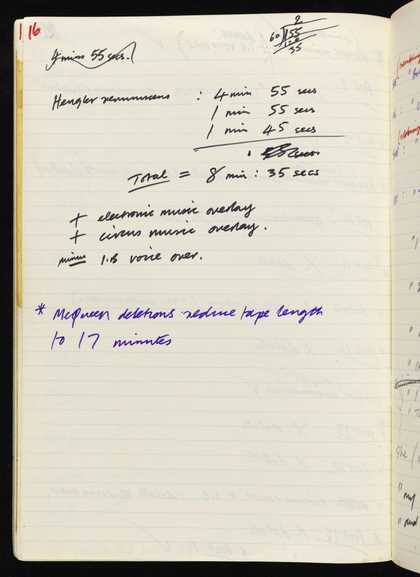 116
2
60 √155
120
35
4 mins 55 secs.
Hengler reminiscens : 4 min 55 secs
1 min 55 secs
1 min 45 secs
Total = 8 min : 35 secs
+ electronic music overlay
+ circus music overlay.
minus 1.B voice over.
* McQueen deletions reduce tape length
to 17 minutes